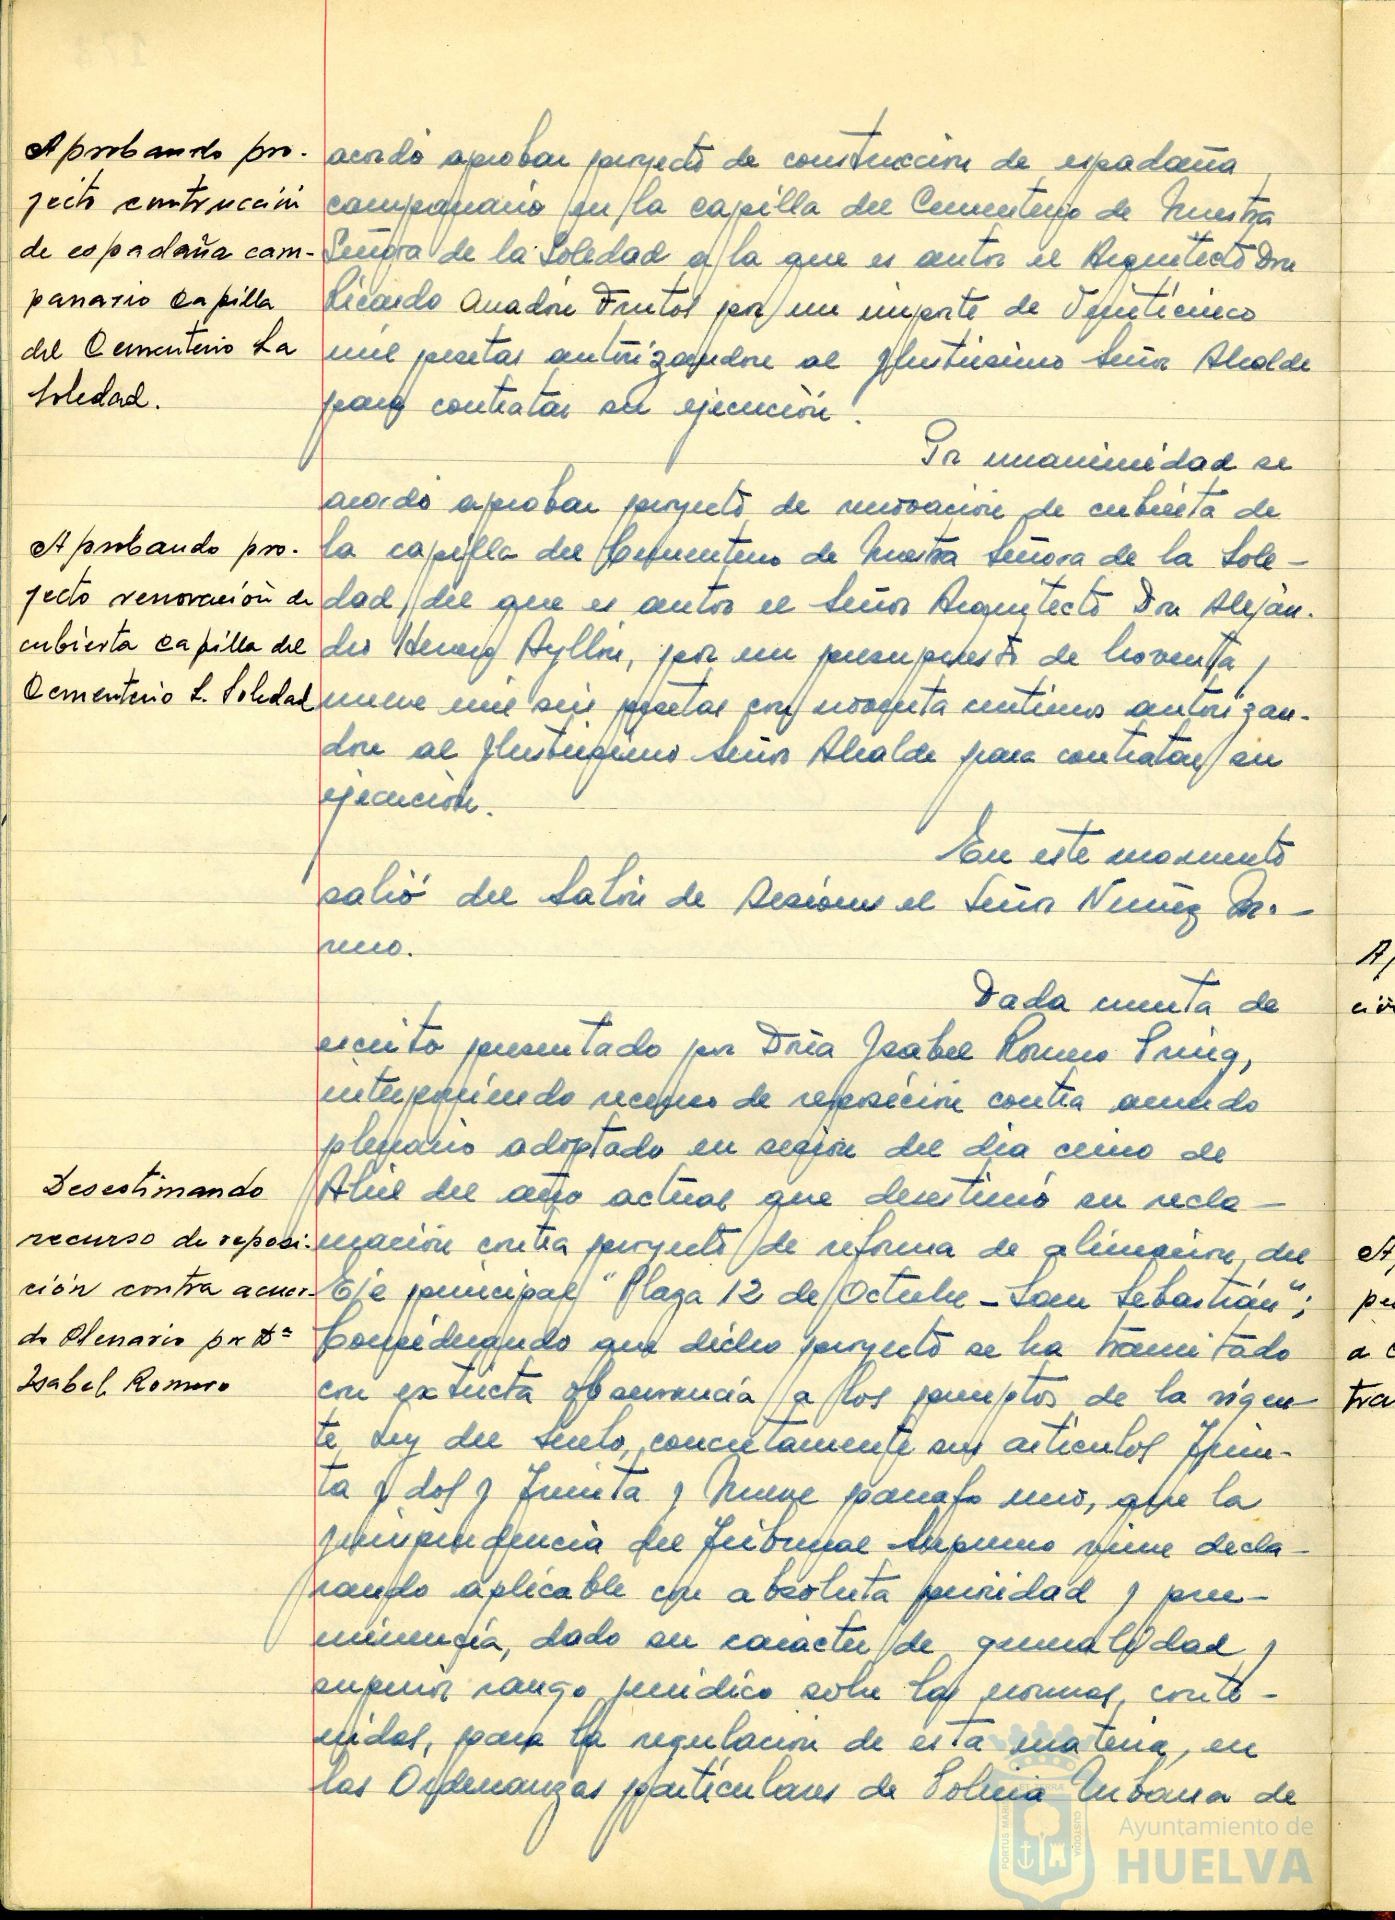 Aprobando pro-
yecto contrucción
de espadaña cam-
panario Capilla
del Cementerio La
Soledad.
acordó aprobar proyecto de construccion de espadaña
campanario en la capilla del Cementerio de Nuestra
Señora de la Soledad a la que es autor el Arquitecto Don
Ricardo Anadón Frutos por un importe de Veinticinco
mil pesetas autorizandose al Ilustrisimo Señor Alcalde
para contratar su ejecución.
Por unanimidad se
acordó aprobar proyecto de renovación de cubierta de
Aprobando pro-
yecto renovación de
cubierta Capilla del
Cementerio L. Soledad
la capilla del Cementerio de Nuestra Señora de la Sole-
dad, del que es autor el Señor Arquitecto Don Aleján-
dro Herrera Ayllón, por un presupuesto de noventa y
nueve mil seis pesetas con noventa centimos autorizan-
dose al Ilustrisimo Señor Alcalde para contratar su
ejecución.
En este momento
salió del Salón de Sesiones el Señor Nuñez Mo-
reno.
Dada cuenta de
escrito presentado por Doña Isabel Romero Puig,
interponiendo recurso de reposición contra acuerdo
plenario adoptado en sesion del dia cinco de
Desestimando
recurso de reposi-
ción contra acuer-
do Plenario por Dª
Isabel Romero
Abril del año actual que desestimó su recla-
mación contra proyecto de reforma de alineacion, del
Eje principal "Plaza 12 de Octubre - San Sebastián";
Considerando que dicho proyecto se ha tramitado
con extricta observancia a los preceptos de la vigen-
te Ley del Suelo, concretamente sus articulos Trein-
ta y dos y Treinta y Nueve parrafo uno, que la
jurisprudencia del Tribunal Supremo viene decla-
rando aplicable con absoluta prioridad y pree-
minencia, dado su caracter de generalidad y
superior rango juridico sobre las normas, conte-
nidas, para la regulacion de esta materia, en
las Ordenanzas particulares de Policia Urbana de
PORTUS MARIS
ET TERRÆ
CUSTODIA
Ayuntamiento de
HUELVA
A
ció
A
pe
a c
tra